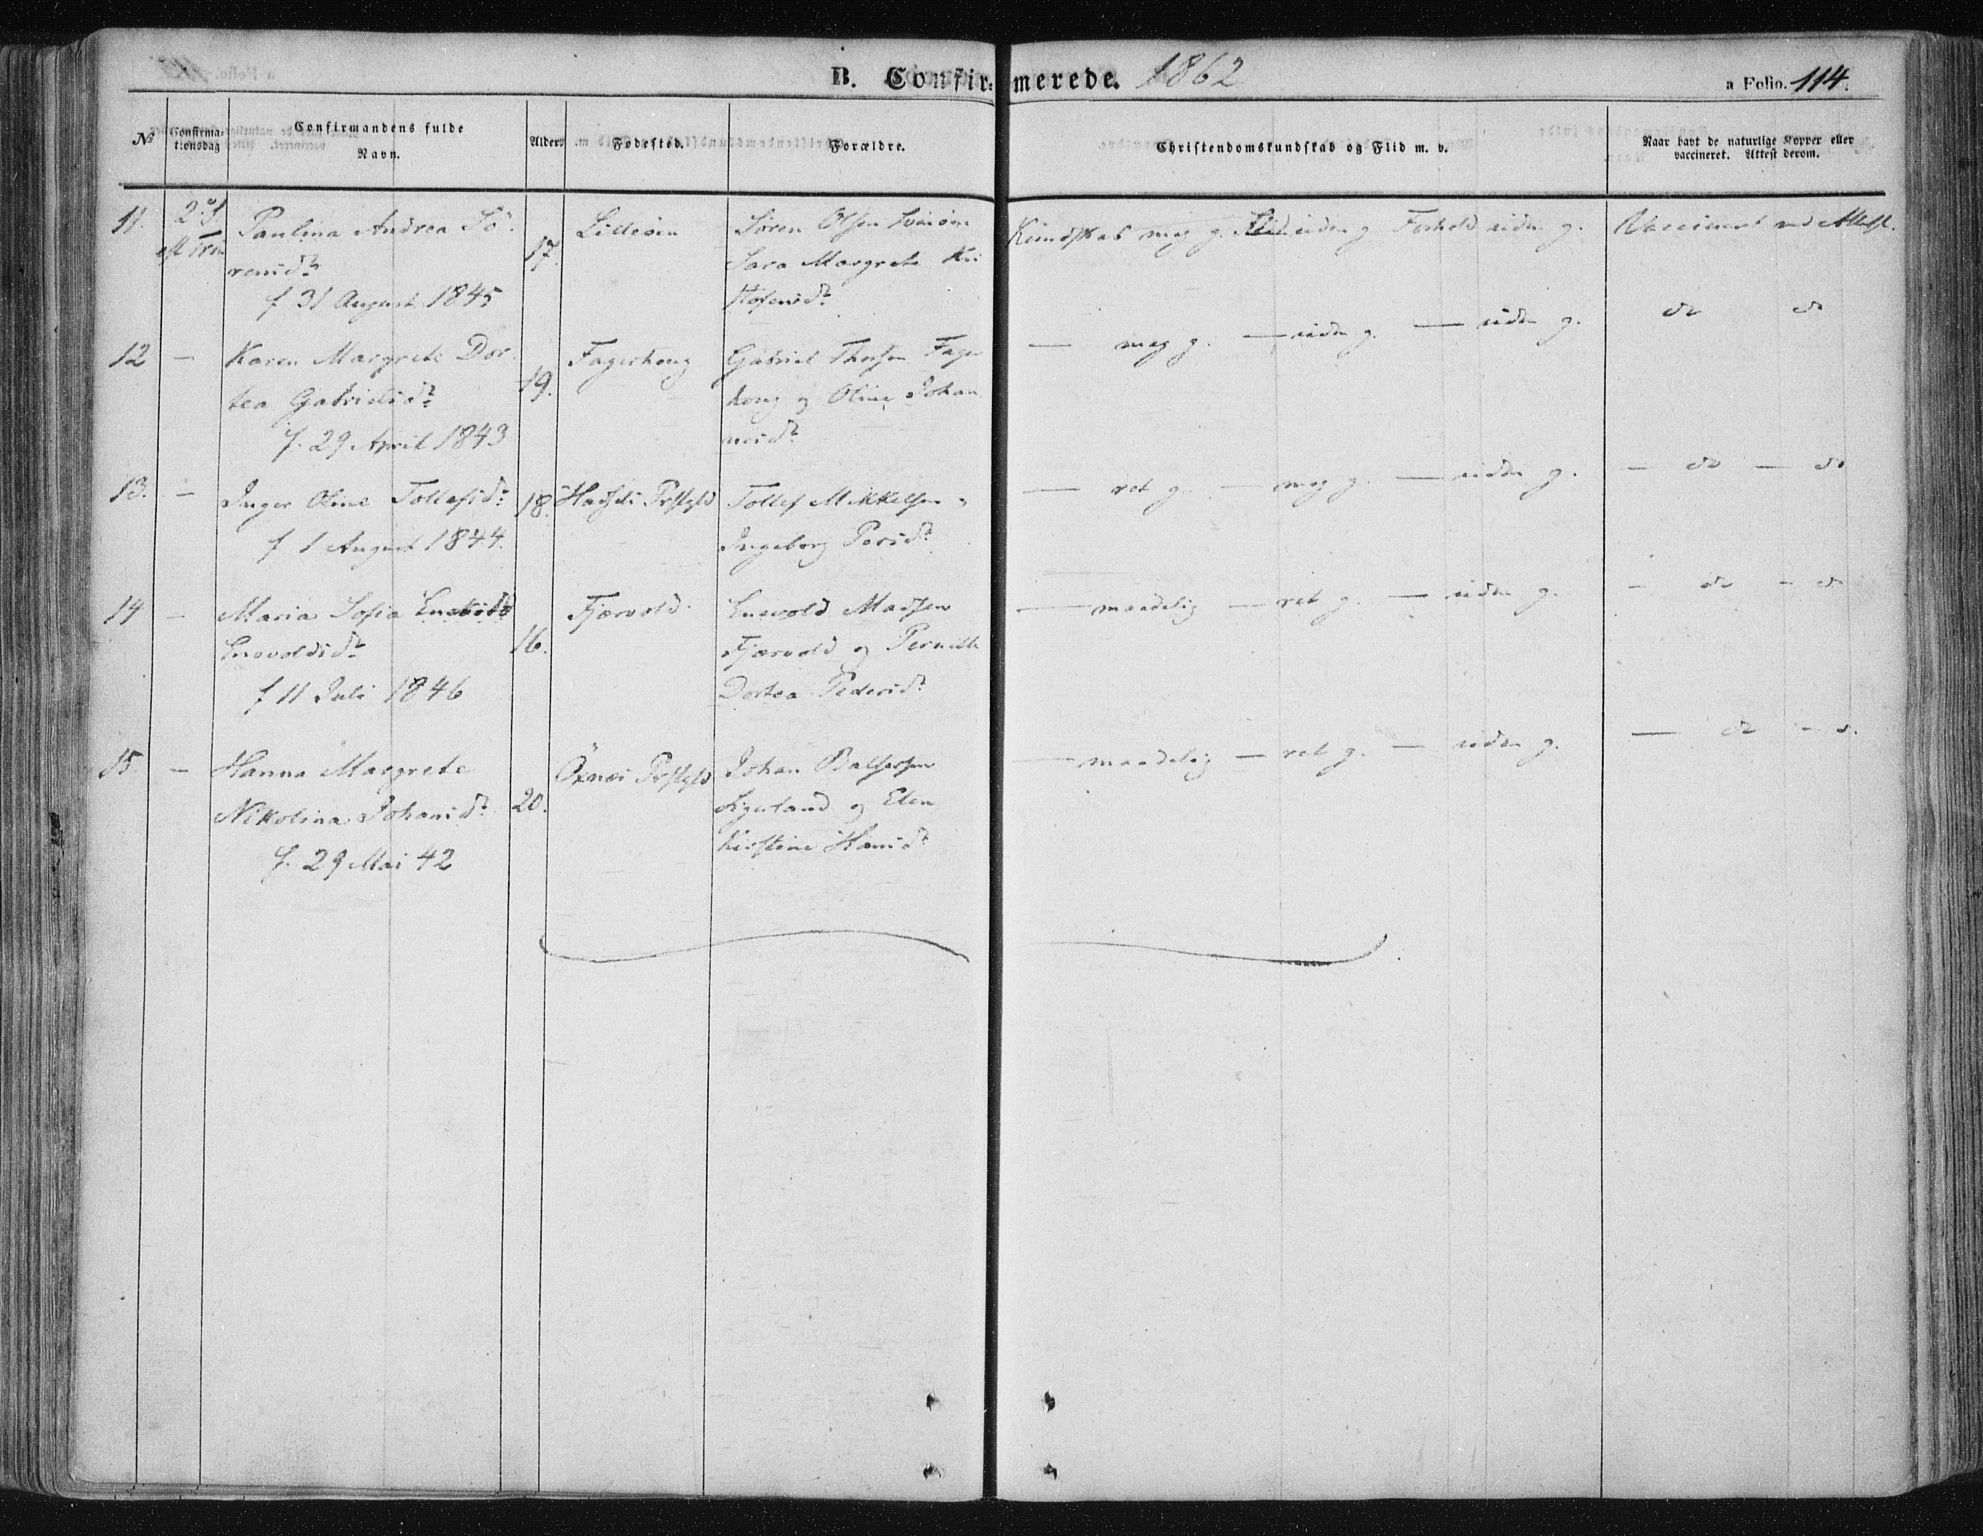 B. Confirmerede. 1862
a Folio. 114.
No
Confirma-
tionsdag
Confirmandens fulde
Navn.
Alder.
Fødested.
Forældre.
Christendomskundskab og Flid m. v.
Naar havt de naturlige Kopper eller
vaccineret. Attest derom.
11.
2 S.
eft Trin
Paulina Andrea Sö-
rensdr
f 31 August 1845
17.
Lilleöen
Sören Olsen
Sara Margrete Kri
stofensdr
Kundskab meg g. Flid uden g Forhold uden g.
Vaccineret ved Attest.
12
—
Karen Margrete Dor-
tea Gabrielsdr
f. 29 April 1843
19.
Fagerhong
Gabriel Thorsen Fager
hong og Oline Johan
nesdr
— meg g. — uden g. — uden g.
do do
13.
—
Inger Oline Tollefsdr
f 1 August 1844.
18.
Hadsels Prstgld
Tollef Mikkelsen
Ingeborg Persdr
— ret g. — meg g. — uden g.
— do — do
14
—
Maria Sofia
Enevoldsdr
f 11 Juli 1846
16.
Fjærvold.
Enevold Madsen
Fjærvold og Pernille
Dortea Pedersdr
— maadelig — ret g. — uden g.
— do — do
15.
—
Hanna Margrete
Nikolina Johansdr
f. 29 Mai 42
20.
Öxnes Prstgld
Johan Baltsersen
Sigerland og Elen
Kirstine Hansdr
— maadelig — ret g. — uden g.
— do — do.